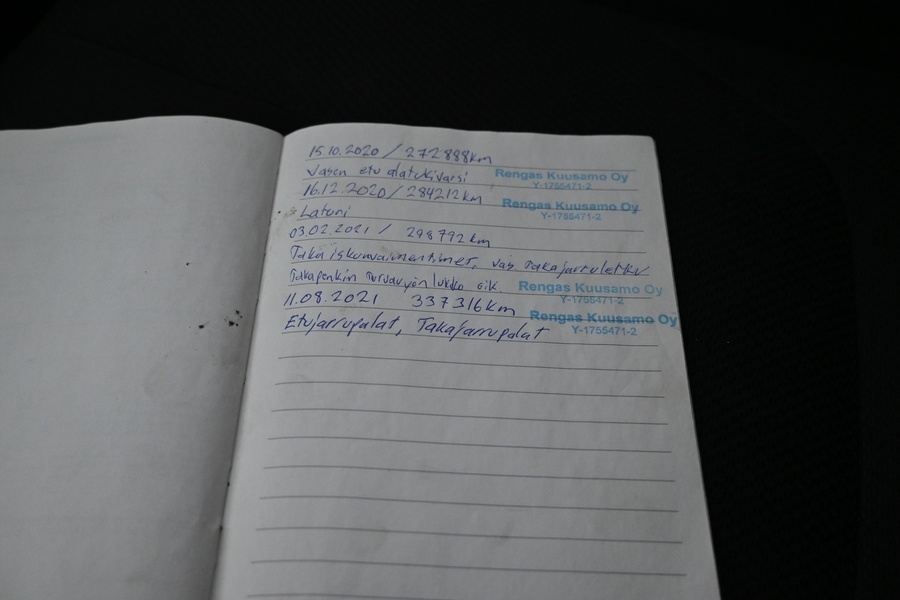 15.10.2020 / 272888km
Vasen etu alatukivarsi Rengas Kuusamo Oy
Y-1755471-2
16.12.2020 / 284212km Rengas Kuusamo Oy
Y-1755471-2
Laturi
03.02.2021 / 298792 km
Taka iskunvaimentimet, vas. Takajarruletku
Takapenkin turvavyön lukko oik. Rengas Kuusamo Oy
Y-1755471-2
11.08.2021 337316km Rengas Kuusamo Oy
Y-1755471-2
Etujarrupalat, Takajarrupalat